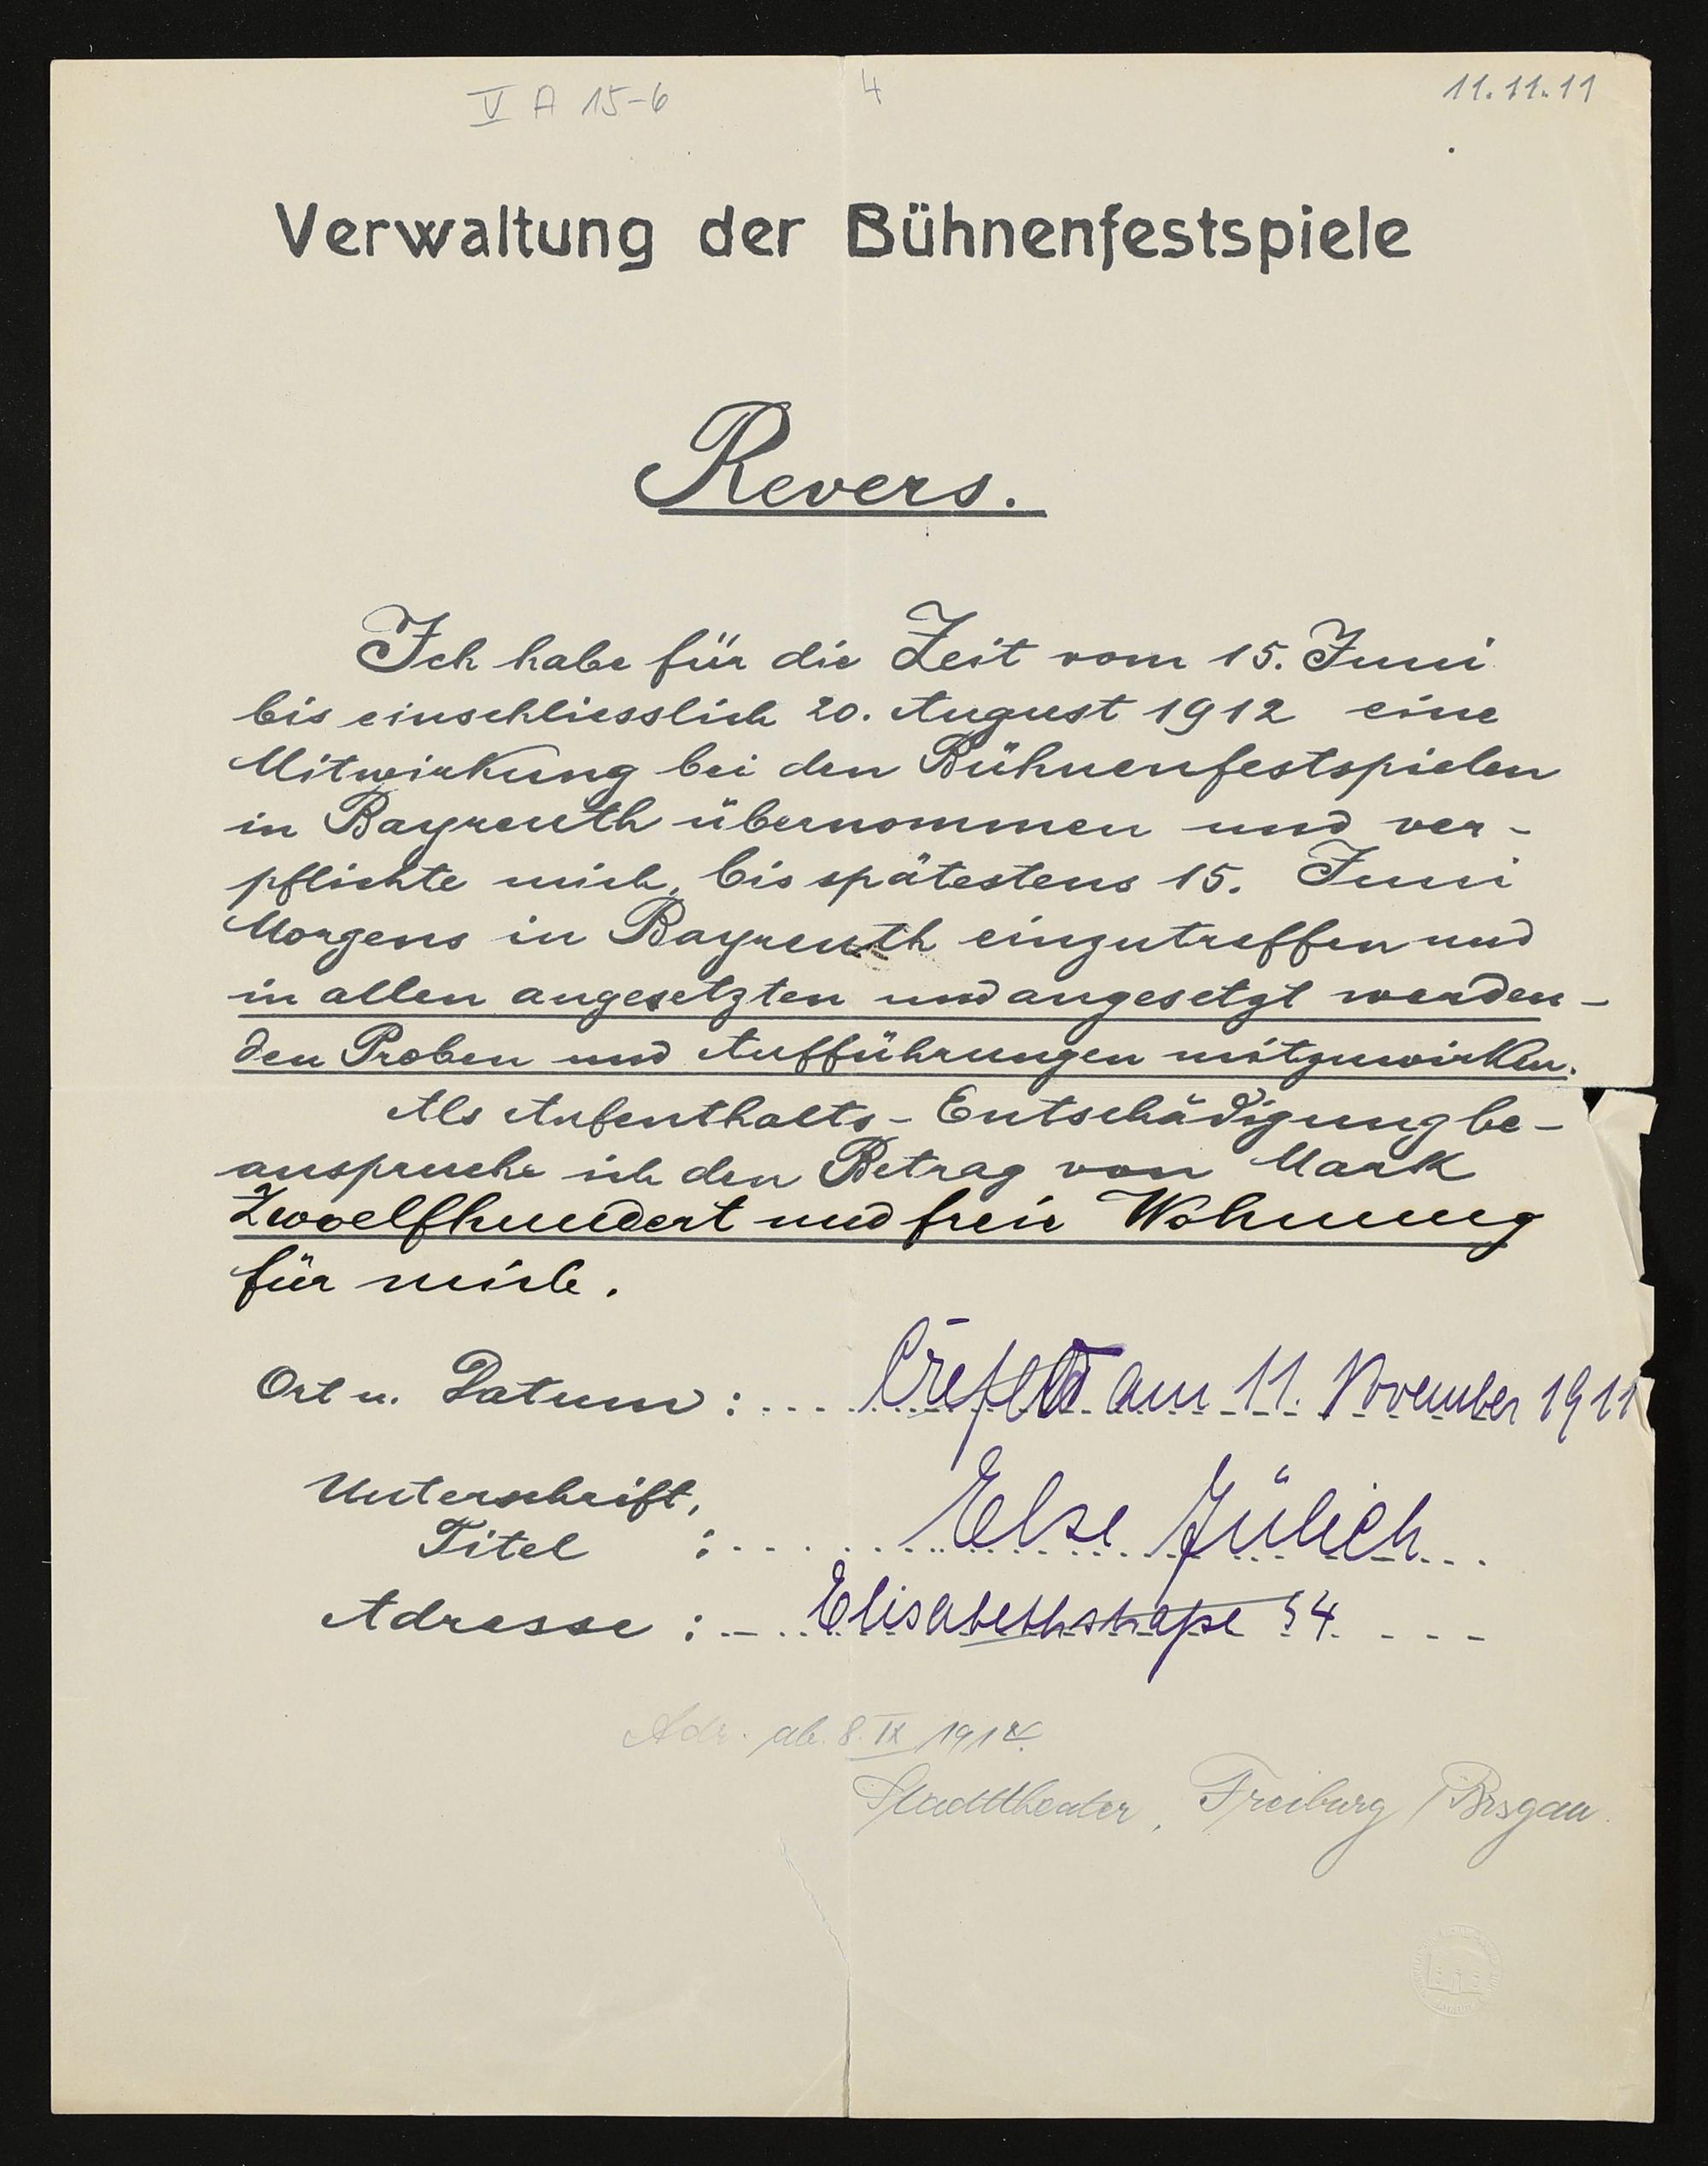 V A 15-6 4 11.11.11
Verwaltung der Bühnenfestspiele
Revers.
Ich habe für die Zeit vom 15. Juni
bis einschliesslich 20. August 1912 eine
Mitwirkung bei den Bühnenfestspielen
in Bayreuth übernommen und ver-
pflichte mich, bis spätestens 15. Juni
Morgens in Bayreuth einzutreffen und
in allen angesetzten und angesetzt werden-
den Proben und Aufführungen mitzuwirken.
Als Aufenthalts-Entschädigung be-
anspruche ich den Betrag von Mark
Zwoelfhundert und freie Wohnung
für mich.
Ort u. Datum: Crefeld am 11. November 1911
Unterschrift,
Titel : Else Jülich
Adresse: Elisabethstraße 54
Adr. ab. 8. IX
Stadttheater, Freiburg / Brsgau.